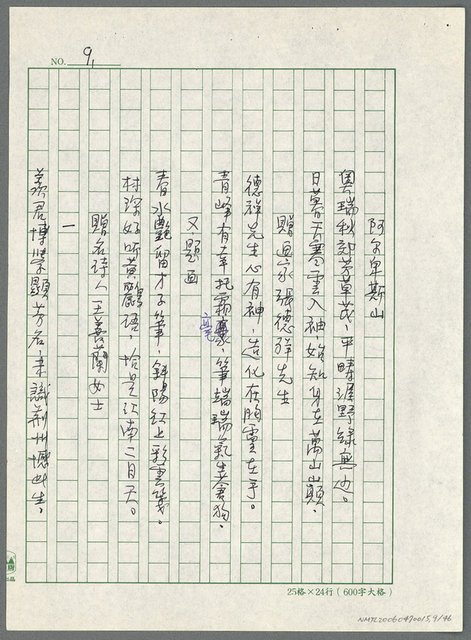 NO. 9
阿尔卑斯山
奥瑞秋郊芳草茂，平疇涯野綠無边。
日暮天寒雲入袖，始知身在萬山巔。
贈画家張德祥先生
德祥先生心有神，造化在胸靈在手。
青峰有幸托霜毫，筆端瑞氣生蒼狗。
又題画
春水艷留才子筆，斜陽紅上彩雲箋。
林深好听黃鸝語，恰是江南二月天。
贈名詩人王蕙蘭女士
一
羨君博學顯芳名，未識荊州憾此生。
25格×24行（600字大格）
NMTL20060470015, 9/46